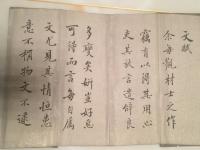 文賦
余每觀材士之作
竊有以得其用心
夫其放言遣辭良
多變矣妍蚩好惡
可得而言每自屬
文尤見其情恒患
意不稱物文不逮